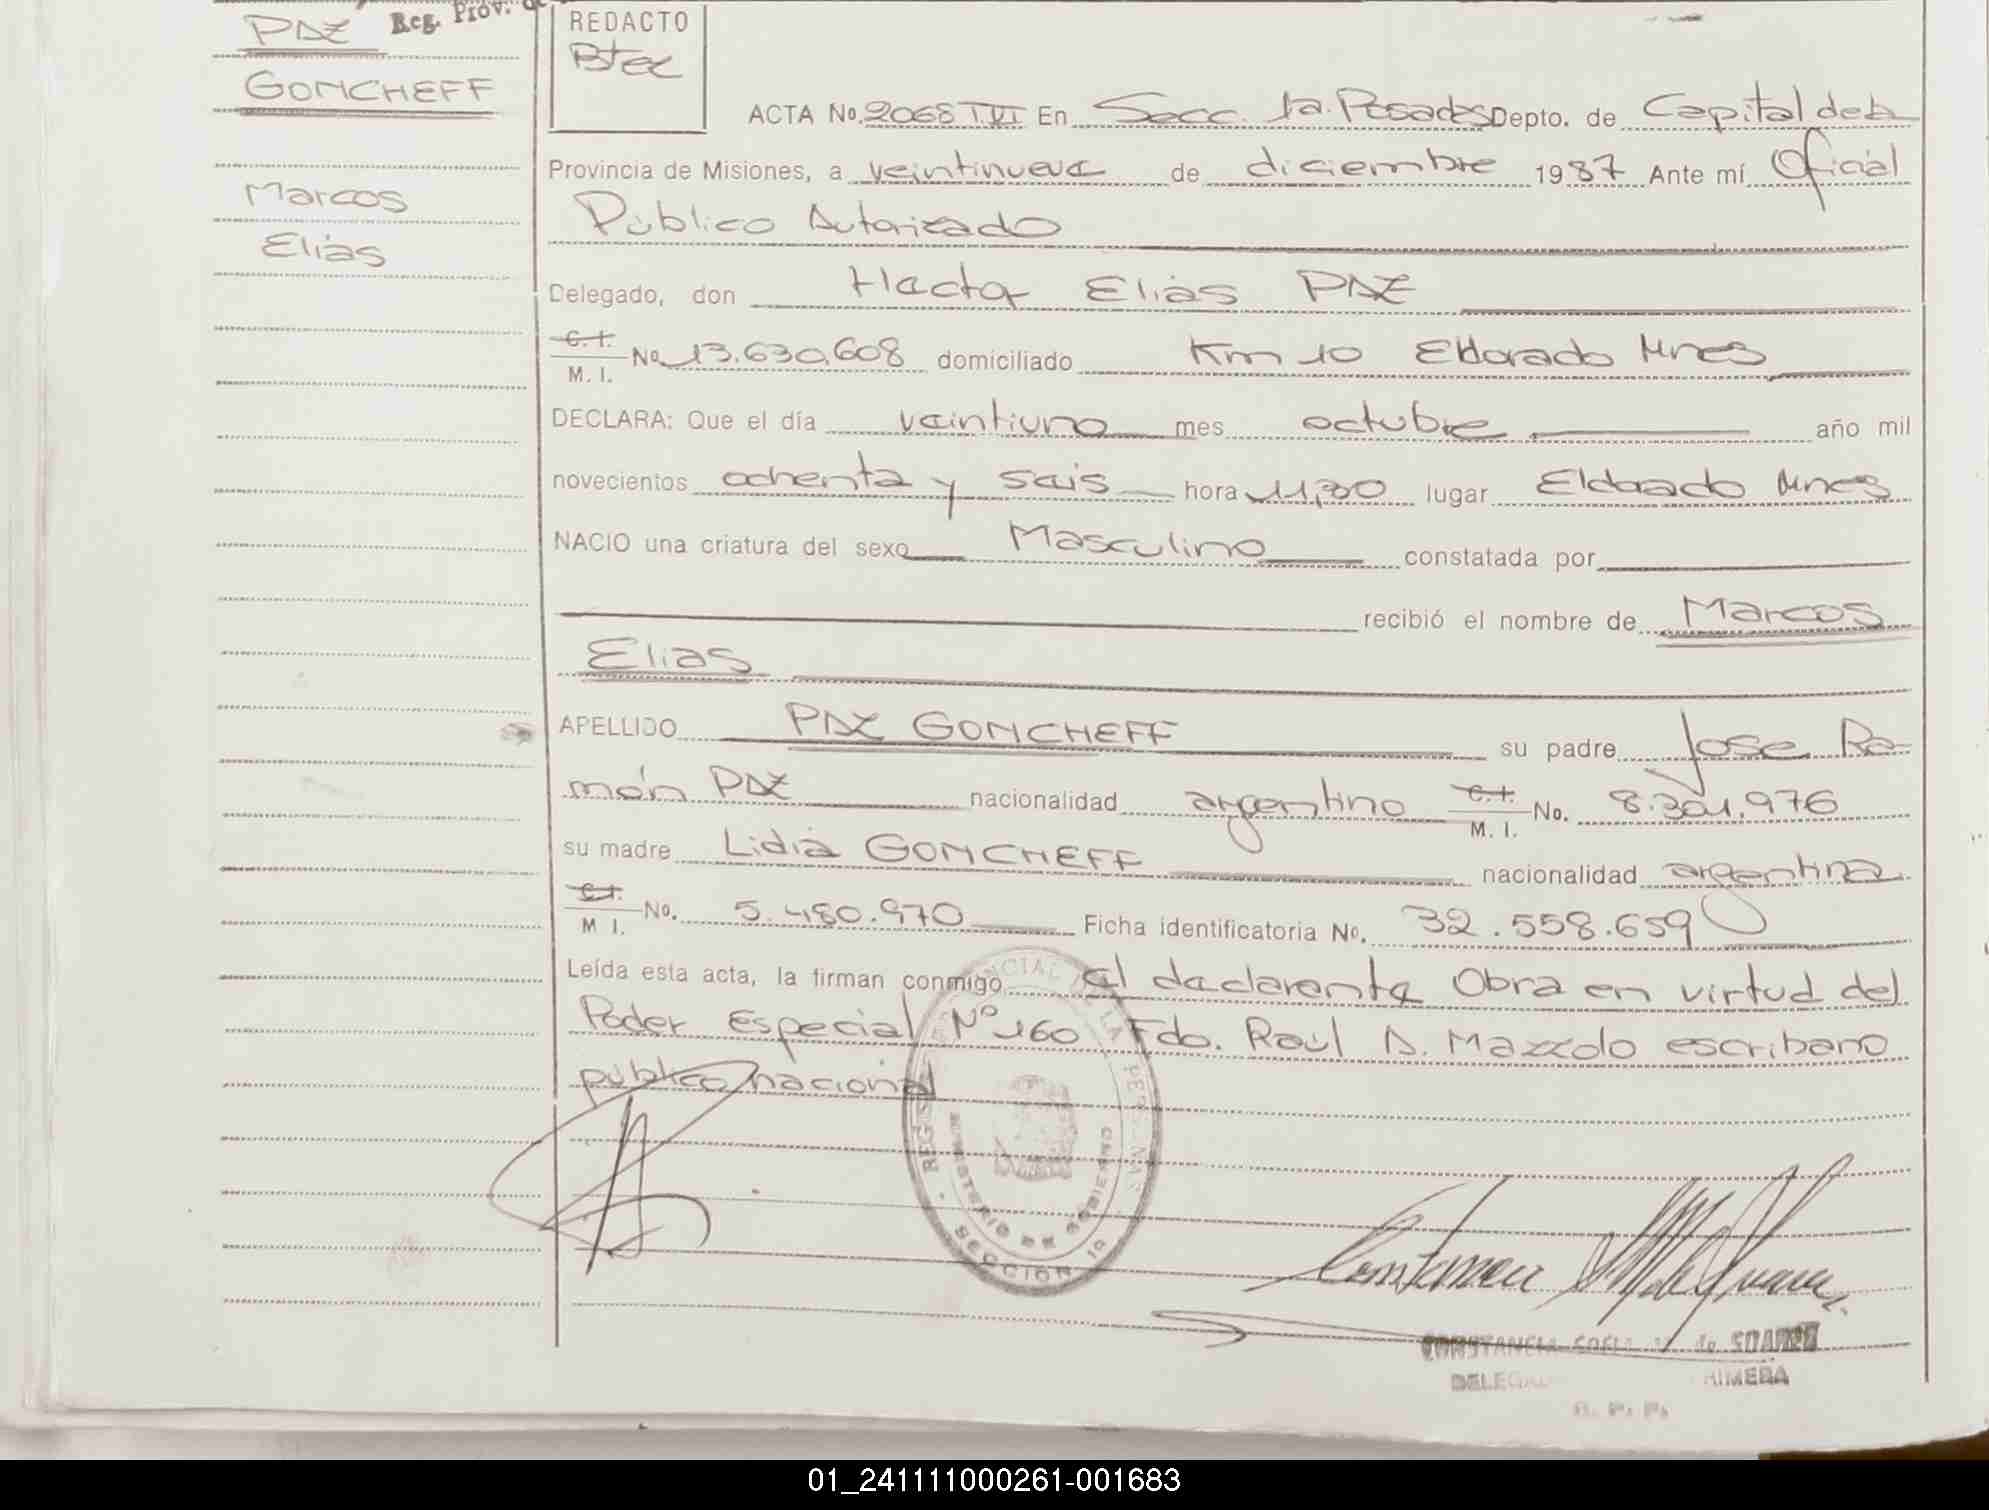 PAZ Reg. Prov.
GONCHEFF
Marcos
Elías
REDACTO
Btec
ACTA No. 2068 T.VI En Secc. 1a. Posadas Depto. de Capital de la
Provincia de Misiones, a veintinueve de diciembre 1987 Ante mí Oficial
Público Autorizado
Delegado, don Hector Elías PAZ
C.I.
M. I. No. 13.630.608 domiciliado Km 10 Eldorado Mnes
DECLARA: Que el día veintiuno mes octubre año mil
novecientos ochenta y seis hora 11,30 lugar Eldorado Mnes
NACIO una criatura del sexo Masculino constatada por
recibió el nombre de Marcos
Elías
APELLIDO PAZ GONCHEFF su padre Jose Ra-
món PAZ nacionalidad argentino C.I. M. I. No. 8.301.976
su madre Lidia GONCHEFF nacionalidad argentina
C.I. M I. No. 5.480.970 Ficha identificatoria No. 32.558.659
Leída esta acta, la firman conmigo el declarante Obra en virtud del
Poder Especial Nº 160 Fdo. Raúl A. Mazzolo escribano
público nacional
MINISTERIO DE GOBIERNO
SECCION 1a
CONSTANCIA de SUAREZ
01_241111000261-001683